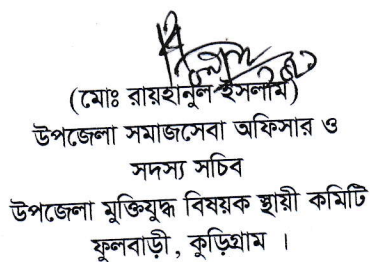 (মোঃ রায়হানুল ইসলাম)
উপজেলা সমাজসেবা অফিসার ও
সদস্য সচিব
উপজেলা মুক্তিযুদ্ধ বিষয়ক স্থায়ী কমিটি
ফুলবাড়ী, কুড়িগ্রাম ।